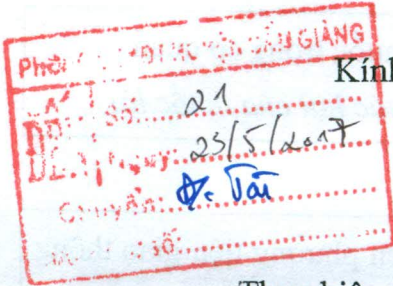 HUYỆN CẨM GIÀNG
Kính
ĐẾN Số: 21
Ngày: 23/5/2017
Chuyển: Đ. Tài
số: